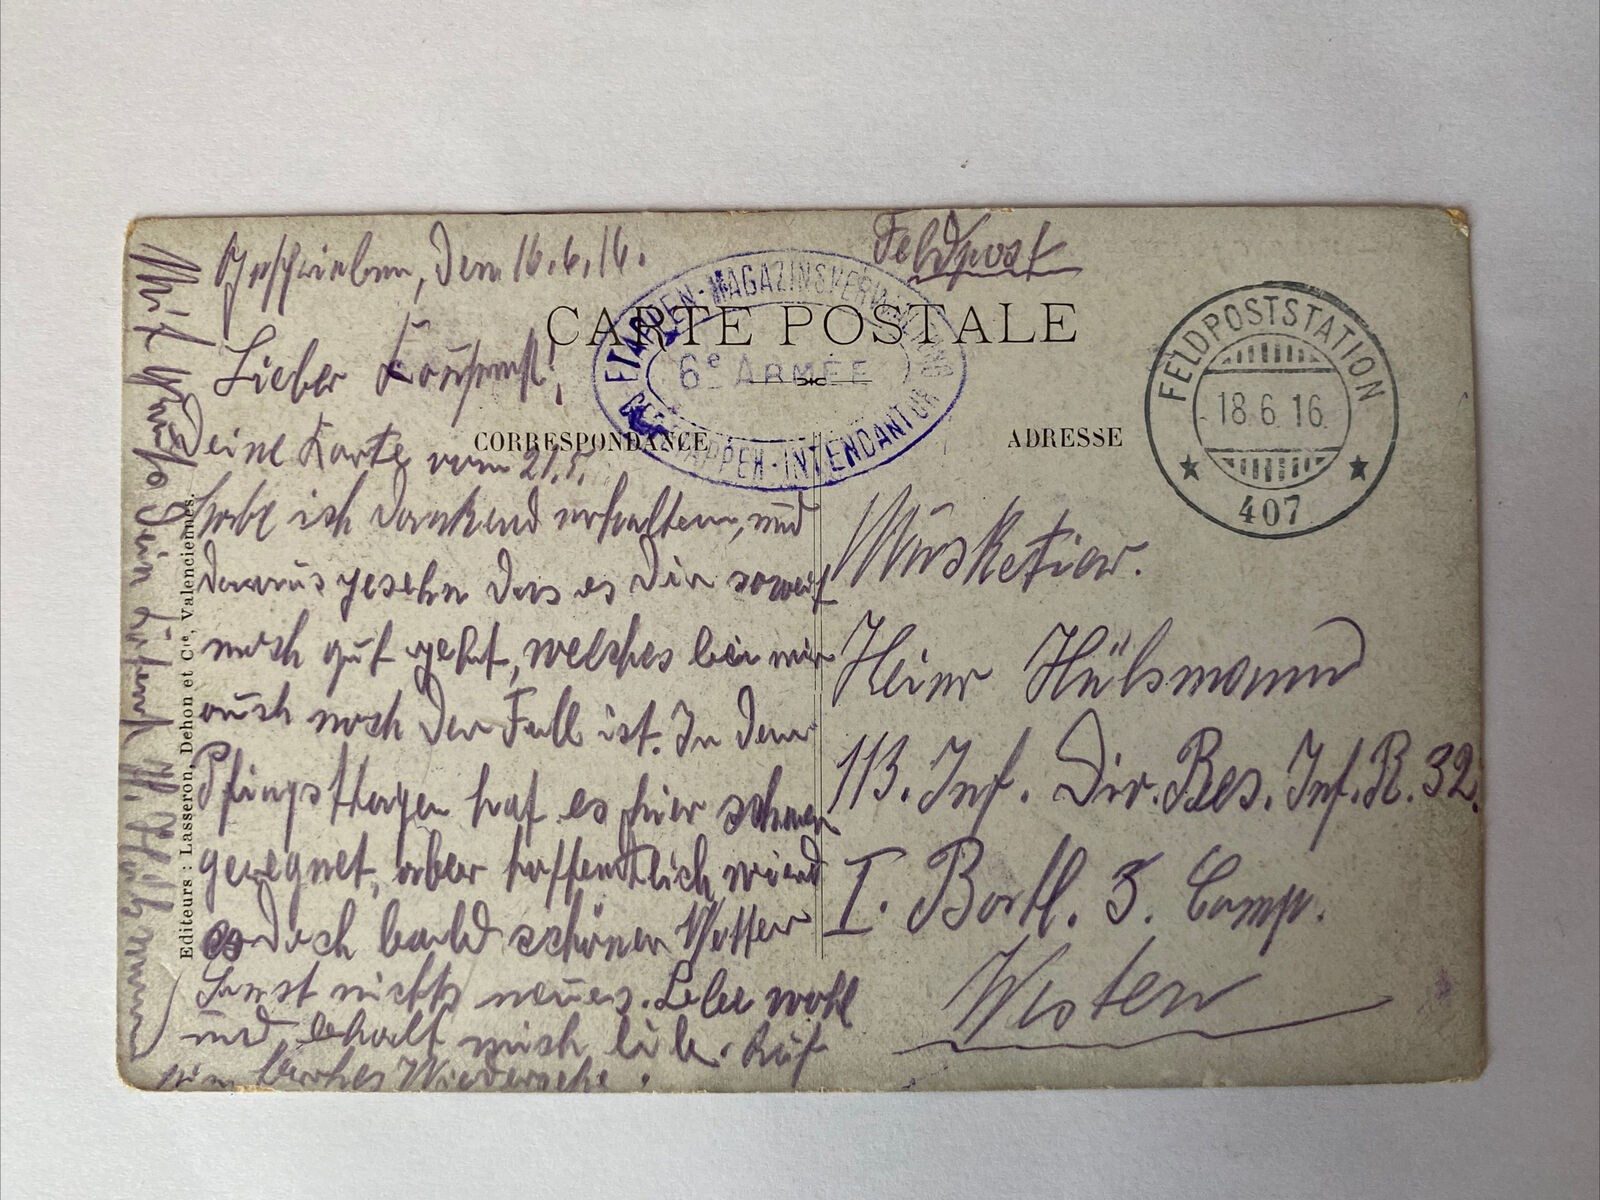 Geschrieben, den 16.6.16.
Feldpost
CARTE POSTALE
CORRESPONDANCE
ADRESSE
ETAPPEN-MAGAZINSVERWALTUNG
6e ARMÉE
DER ETAPPEN-INTENDANTUR
FELDPOSTSTATION
18.6.16.
407
Lieber
Deine Karte vom 21.5.
habe ich dankend erhalten, und
daraus gesehn das es Dir soweit
noch gut geht, welches bei mir
auch noch der Fall ist. In den
Pfingsttagen hat es hier schwer
geregnet, aber hoffendlich wird
es doch bald schöner Wetter
Sonst nichts neues. Lebe wohl
und behalt mich lieb. Auf
ein Wiedersehn.
Mit Gruß Dein
Musketier.
Heinr Hülsmann
113. Inf. Div. Res. Inf. R. 32.
I. Batl. 3. Comp.
Westen
Editeurs : Lasseron, Dehon et Cie, Valenciennes.